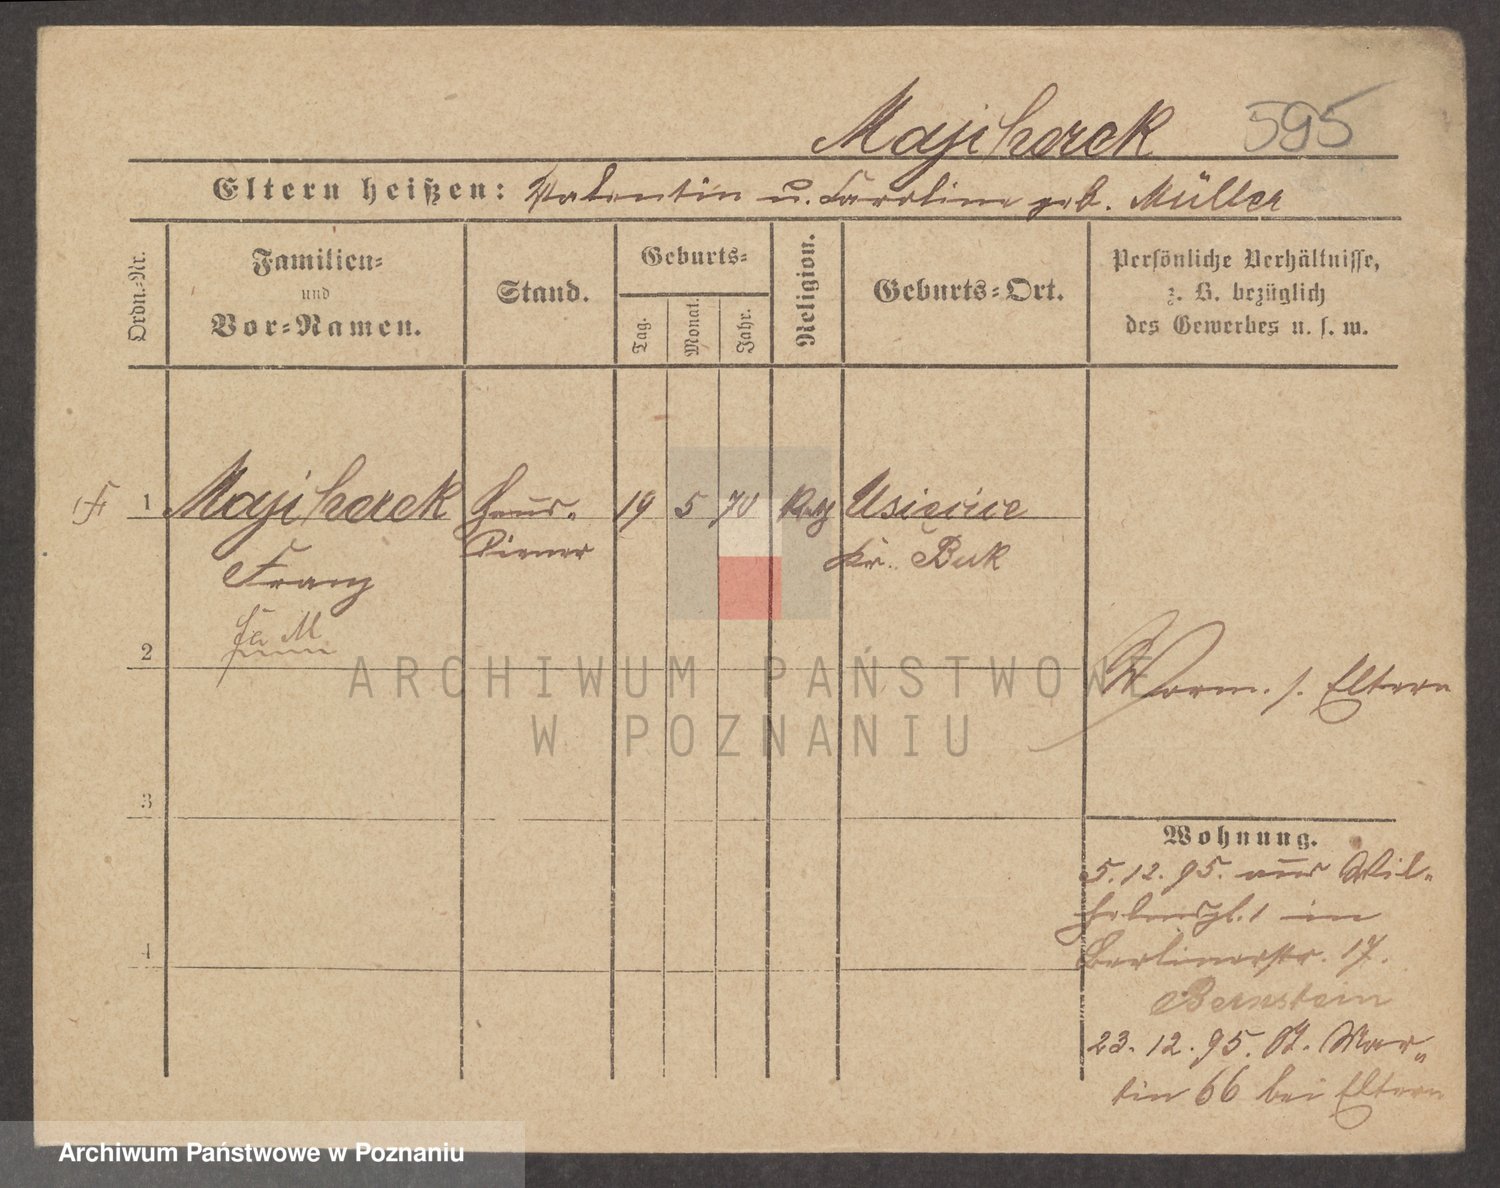 Majcherek 595
Eltern heißen: Valentin u. Caroline geb. Müller
Ordn.-Nr.
Familien-
und
Vor-Namen.
Stand.
Geburts-
Tag.
Monat.
Jahr.
Religion.
Geburts-Ort.
Persönliche Verhältnisse,
z. B. bezüglich
des Gewerbes u. s. w.
1 Majcherek Haus- 19 5 70
diener
Franz
Kr. Buk
2
s. Eltern
3
Wohnung.
5.12.95. aus Wil-
helmspl. 1 in
Berlinerstr. 17.
Bernstein
23.12.95. St. Mar-
tin 66 bei Eltern
4
ARCHIWUM PAŃSTWOWE
W POZNANIU
Archiwum Państwowe w Poznaniu